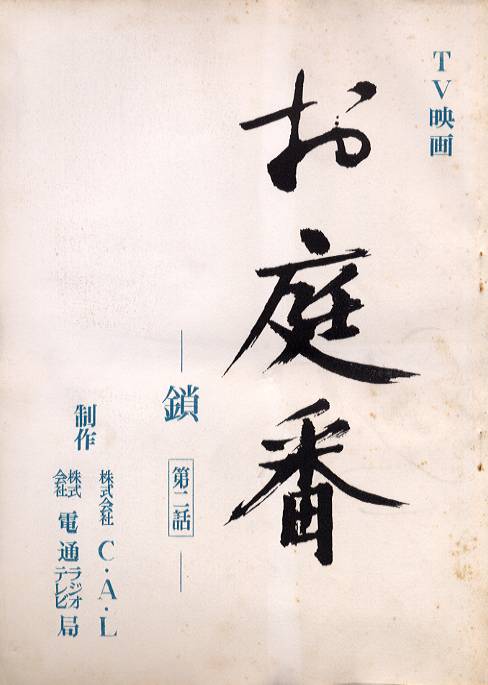 TV映画
お庭番
―鎖 第二話―
制作
株式会社 C・A・L
株式会社 電通ラジオテレビ局